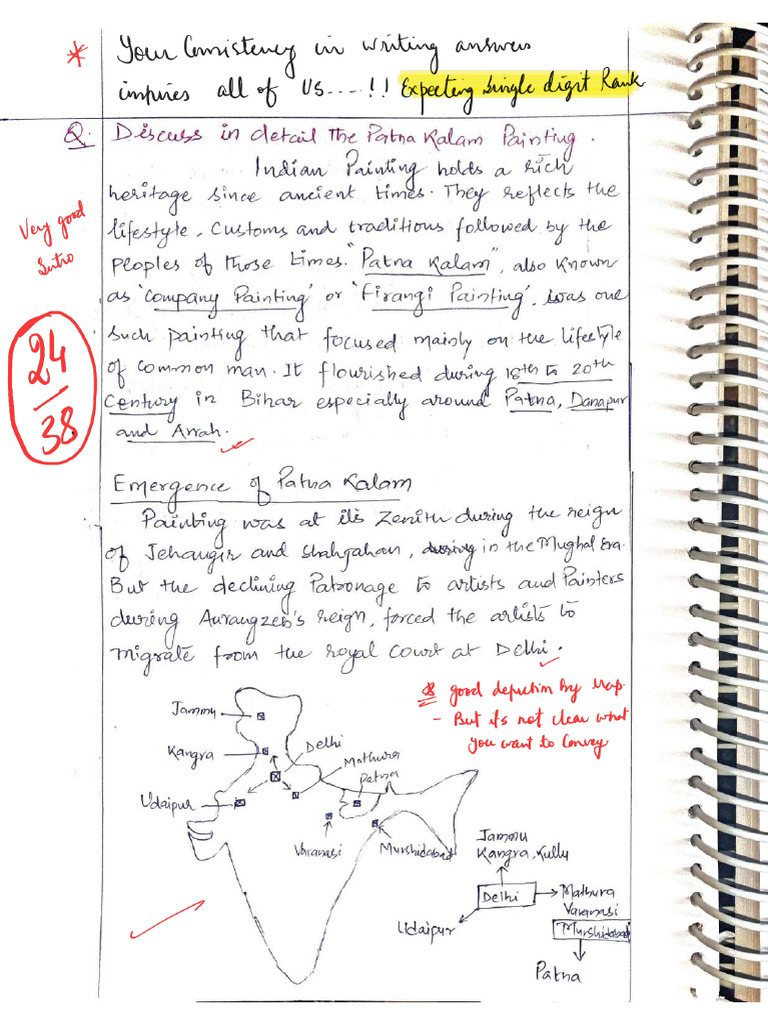 * Your Consistency in writing answers
inspires all of Us....!! Expecting Single digit Rank
Q. Discuss in detail the Patna Kalam Painting.
Indian Painting holds a rich
heritage since ancient times. They reflects the
lifestyle, Customs and traditions followed by the
Very good
Intro
peoples of those times. "Patna Kalam", also Known
as 'Company Painting' or 'Firangi Painting', was one
such painting that focused mainly on the lifestyle
of common man. It flourished during 18th to 20th
Century in Bihar especially around Patna, Danapur
and Arrah.
24
38
Emergence of Patna Kalam
Painting was at its Zenith during the reign
of Jehangir and Shahjahan, during in the Mughal Era.
But the declining Patronage to artists and Painters
during Aurangzeb's reign, forced the artists to
migrate from the royal Court at Delhi.
good depiction by Map.
- But it's not clear what
you want to Convey
Jammu
Kangra
Delhi
Mathura
Patna
Udaipur
Varanasi
Murshidabad
Jammu
Kangra, Kullu
Delhi
Mathura
Varanasi
Murshidabad
Udaipur
Patna